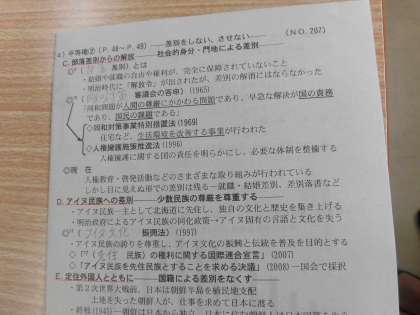 a) 平等権② (P. 48～P. 49) ――差別をしない、させない―― (NO. 207)
C. 部落差別からの解放――社会的身分・門地による差別――
◎「 差別」とは
・結婚や就職の自由や権利が、完全に保障されていないこと
・明治時代に「解放令」が出されたが、差別の解消にはならなかった
◎「 審議会の答申」(1965)
同和問題が人間の尊厳にかかわる問題であり、早急な解決が国の責務
であり、国民の課題である」
◇同和対策事業特別措置法 (1969)
住宅など、生活環境を改善する事業が行われた
◇人権擁護施策推進法 (1996)
人権擁護に関する国の責任を明らかにし、必要な体制を整備する
◎現 在
人権教育・啓発活動などのさまざまな取り組みが行われている
しかし目に見えぬ形での差別は残る―就職・結婚差別、差別落書など
D. アイヌ民族への差別――少数民族の尊厳を尊重する――
・アイヌ民族―主として北海道に先住し、独自の文化と歴史を築き上げる
・明治政府によるアイヌ民族の同化政策→アイヌ固有の言語と文化を失う
◎「アイヌ文化 振興法」(1997)
・アイヌ民族の誇りを尊重し、アイヌ文化の振興と伝統を普及を目的とする
◇「(先住 民族) の権利に関する国際連合宣言」(2007)
◇「アイヌ民族を先住民族とすることを求める決議」(2008) ―国会で採択
E. 定住外国人とともに――国籍による差別をなくす――
・第2次世界大戦前、日本は朝鮮半島を植民地支配
土地を失った朝鮮人が、仕事を求めて日本に渡る